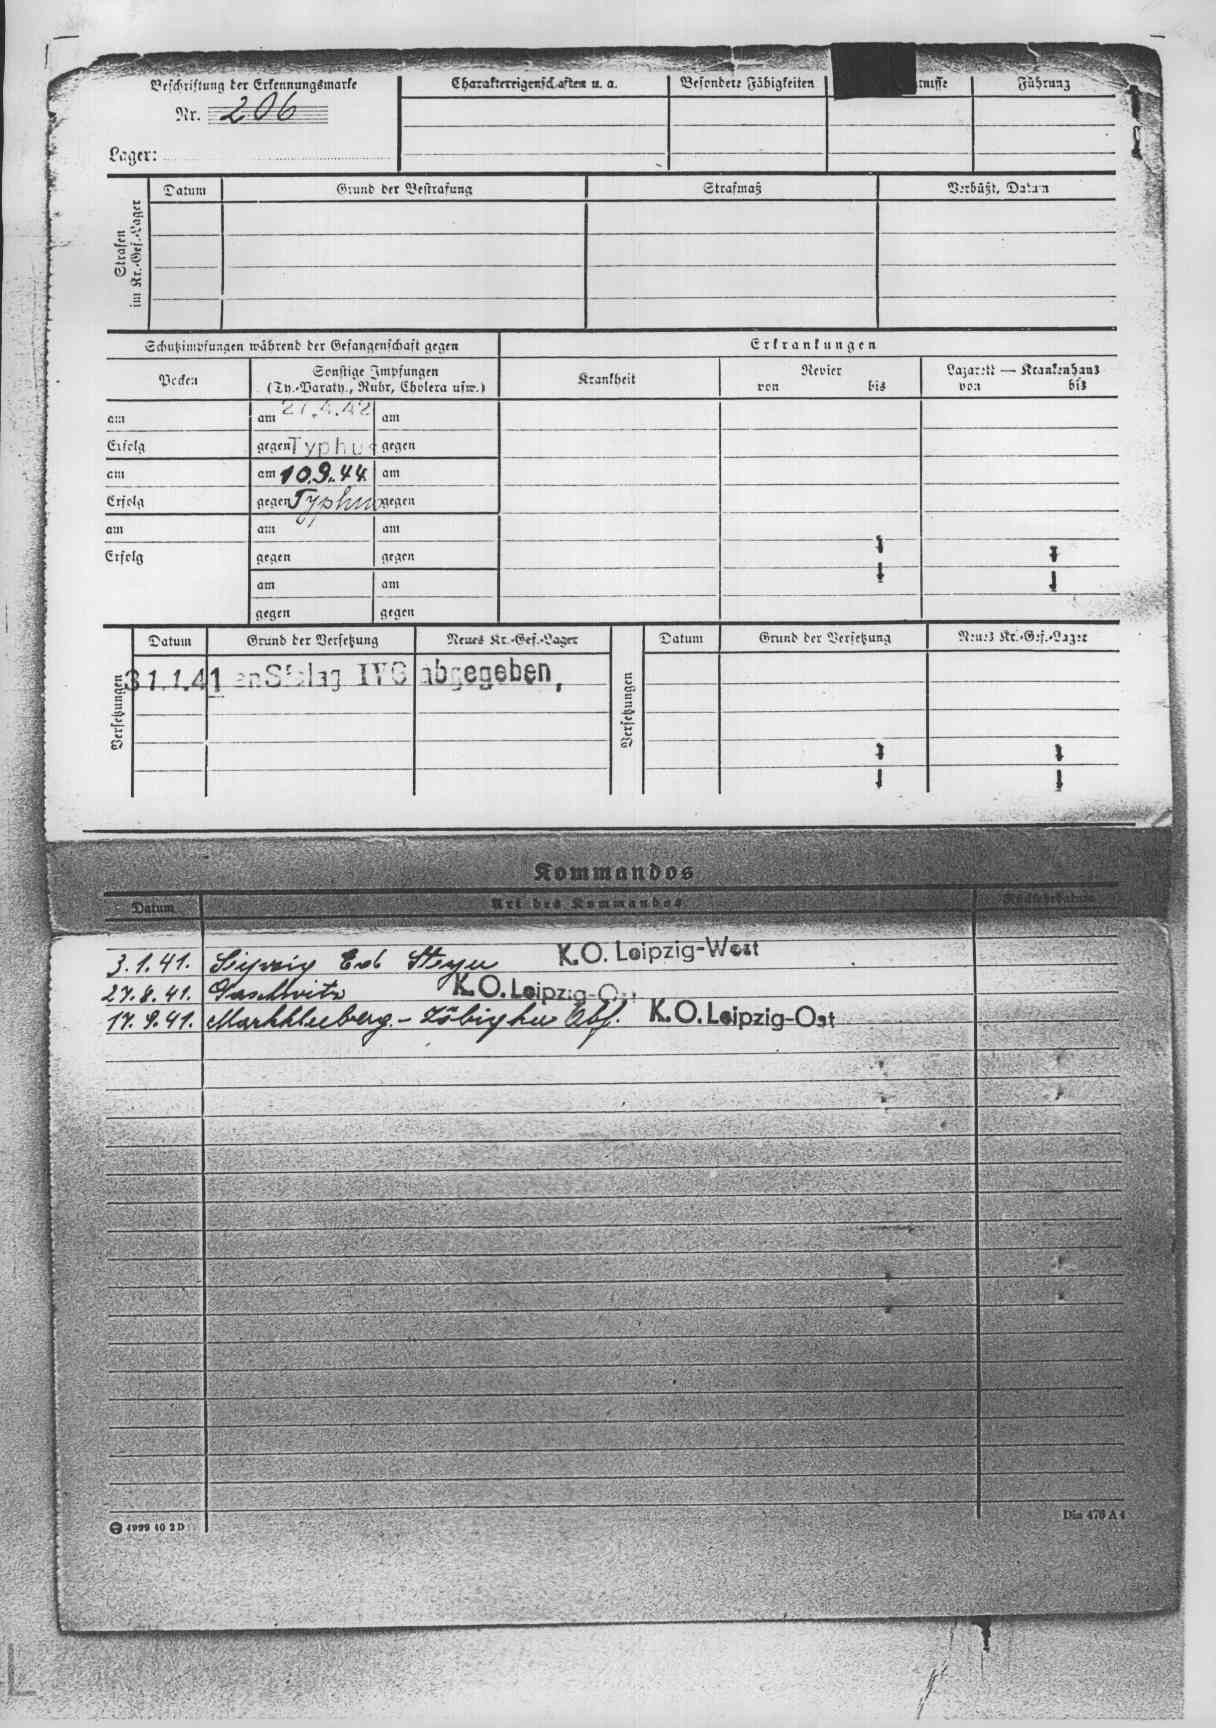 Beschriftung der Erkennungsmarke
Nr. 206
Lager:
Charaktereigenschaften u. a. Besondere Fähigkeiten Führung
Strafen im Kr.-Gef.-Lager
Datum Grund der Bestrafung Strafmaß Verbüßt, Datum
Schutzimpfungen während der Gefangenschaft gegen Erkrankungen
Pocken Sonstige Impfungen Krankheit Revier Lazarett — Krankenhaus
(Ty.-Paraty., Ruhr, Cholera usw.) von bis von bis
am am 27.4.42 am
Erfolg gegen Typhus gegen
am am 10.9.44 am
Erfolg gegen Typhus gegen
am am am
Erfolg gegen gegen
am am
gegen gegen
Versetzungen Datum Grund der Versetzung Neues Kr.-Gef.-Lager Versetzungen Datum Grund der Versetzung Neues Kr.-Gef.-Lager
31.1.41 an Stalag IVG abgegeben,
Kommandos
Datum Art des Kommandos Rückkehrdatum
3.1.41. Leipzig K.O. Leipzig-West
27.8.41. Gaschwitz K.O. Leipzig-Ost
17.9.41. Markkleeberg - Zöbigker K.O. Leipzig-Ost
4999 40 2 D Din 476 A 4